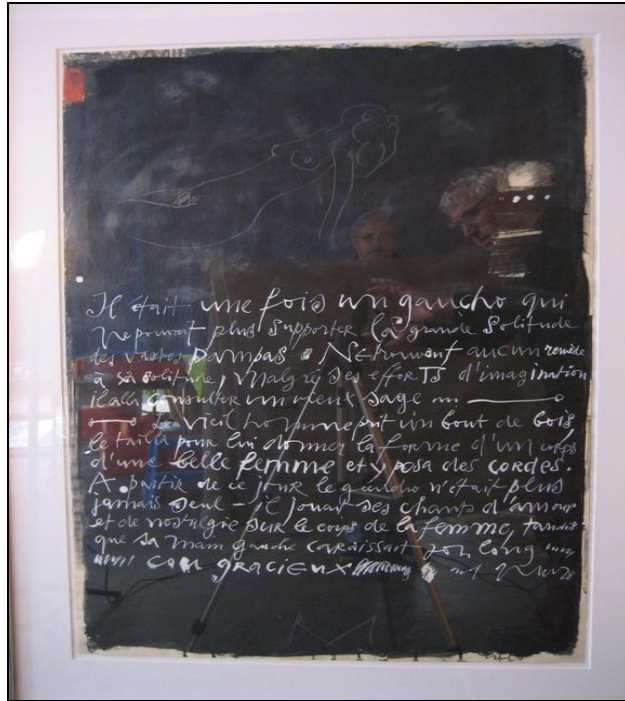 Il était une fois un gaucho qui
ne pouvait plus supporter la grande solitude
des vastes Pampas. Ne trouvant aucun remède
à sa solitude, malgré ses efforts d'imagination
il alla consulter un vieux sage
Le vieil homme prit un bout de bois
le tailla pour lui donner la forme d'un corps
d'une belle femme et y posa des cordes.
A partir de ce jour le gaucho n'était plus
jamais seul - il jouait ses chants d'amour
et de nostalgie sur le corps de la femme, tandis
que sa main gauche caraissait son long
cou gracieux